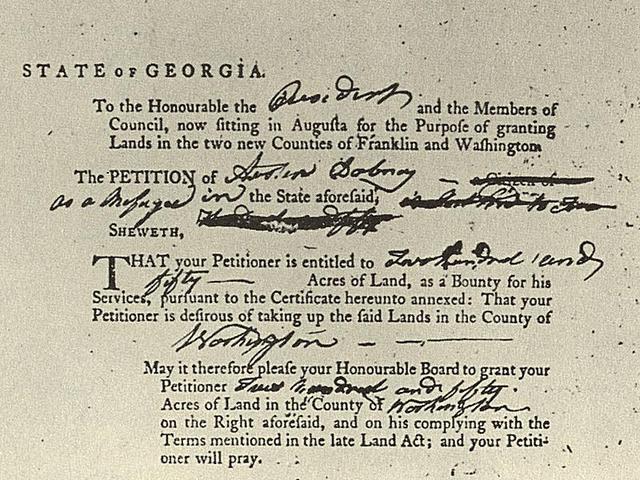 STATE OF GEORGIA.
To the Honourable the President and the Members of
Council, now sitting in Augusta for the Purpose of granting
Lands in the two new Counties of Franklin and Washington
The PETITION of Austin Dabney
as a Refugee in the State aforesaid,
SHEWETH,
THAT your Petitioner is entitled to Two Hundred and
fifty Acres of Land, as a Bounty for his
Services, pursuant to the Certificate hereunto annexed: That your
Petitioner is desirous of taking up the said Lands in the County of
Washington
May it therefore please your Honourable Board to grant your
Petitioner Two Hundred and fifty
Acres of Land in the County of Washington
on the Right aforesaid, and on his complying with the
Terms mentioned in the late Land Act; and your Petiti-
oner will pray.